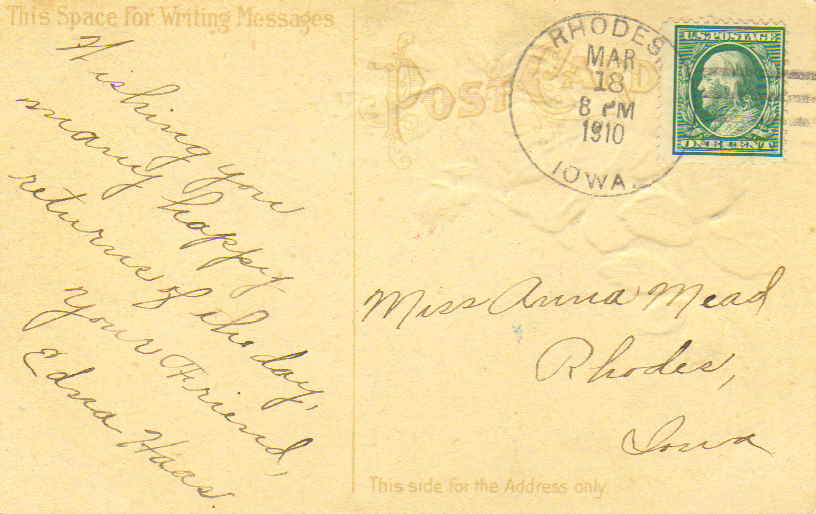 This Space for Writing Messages
Wishing you
many happy
returns of the day,
your Friend,
Edna Haas.
POST CARD
RHODES,
MAR
18
8 PM
1910
IOWA.
U.S. POSTAGE
ONE CENT
Miss Anna Mead
Rhodes,
Iowa
This side for the Address only